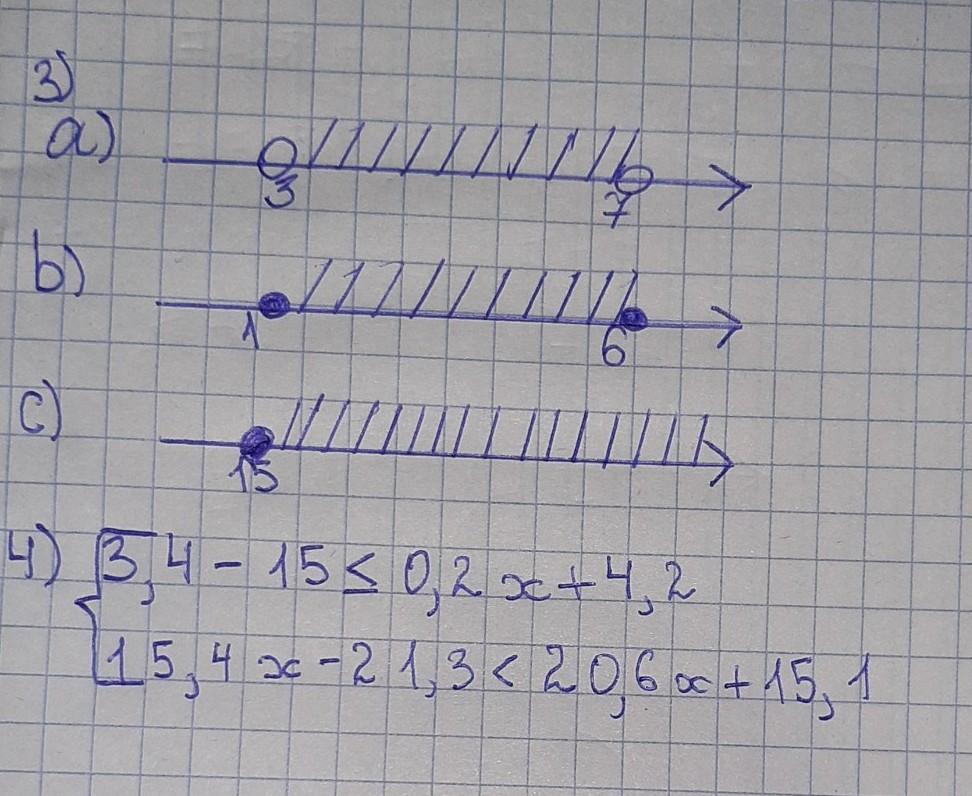 3)
a)
3 7
b)
1 6
c)
15
4) { 3,4 - 15 ≤ 0,2x + 4,2
15,4x - 21,3 < 20,6x + 15,1